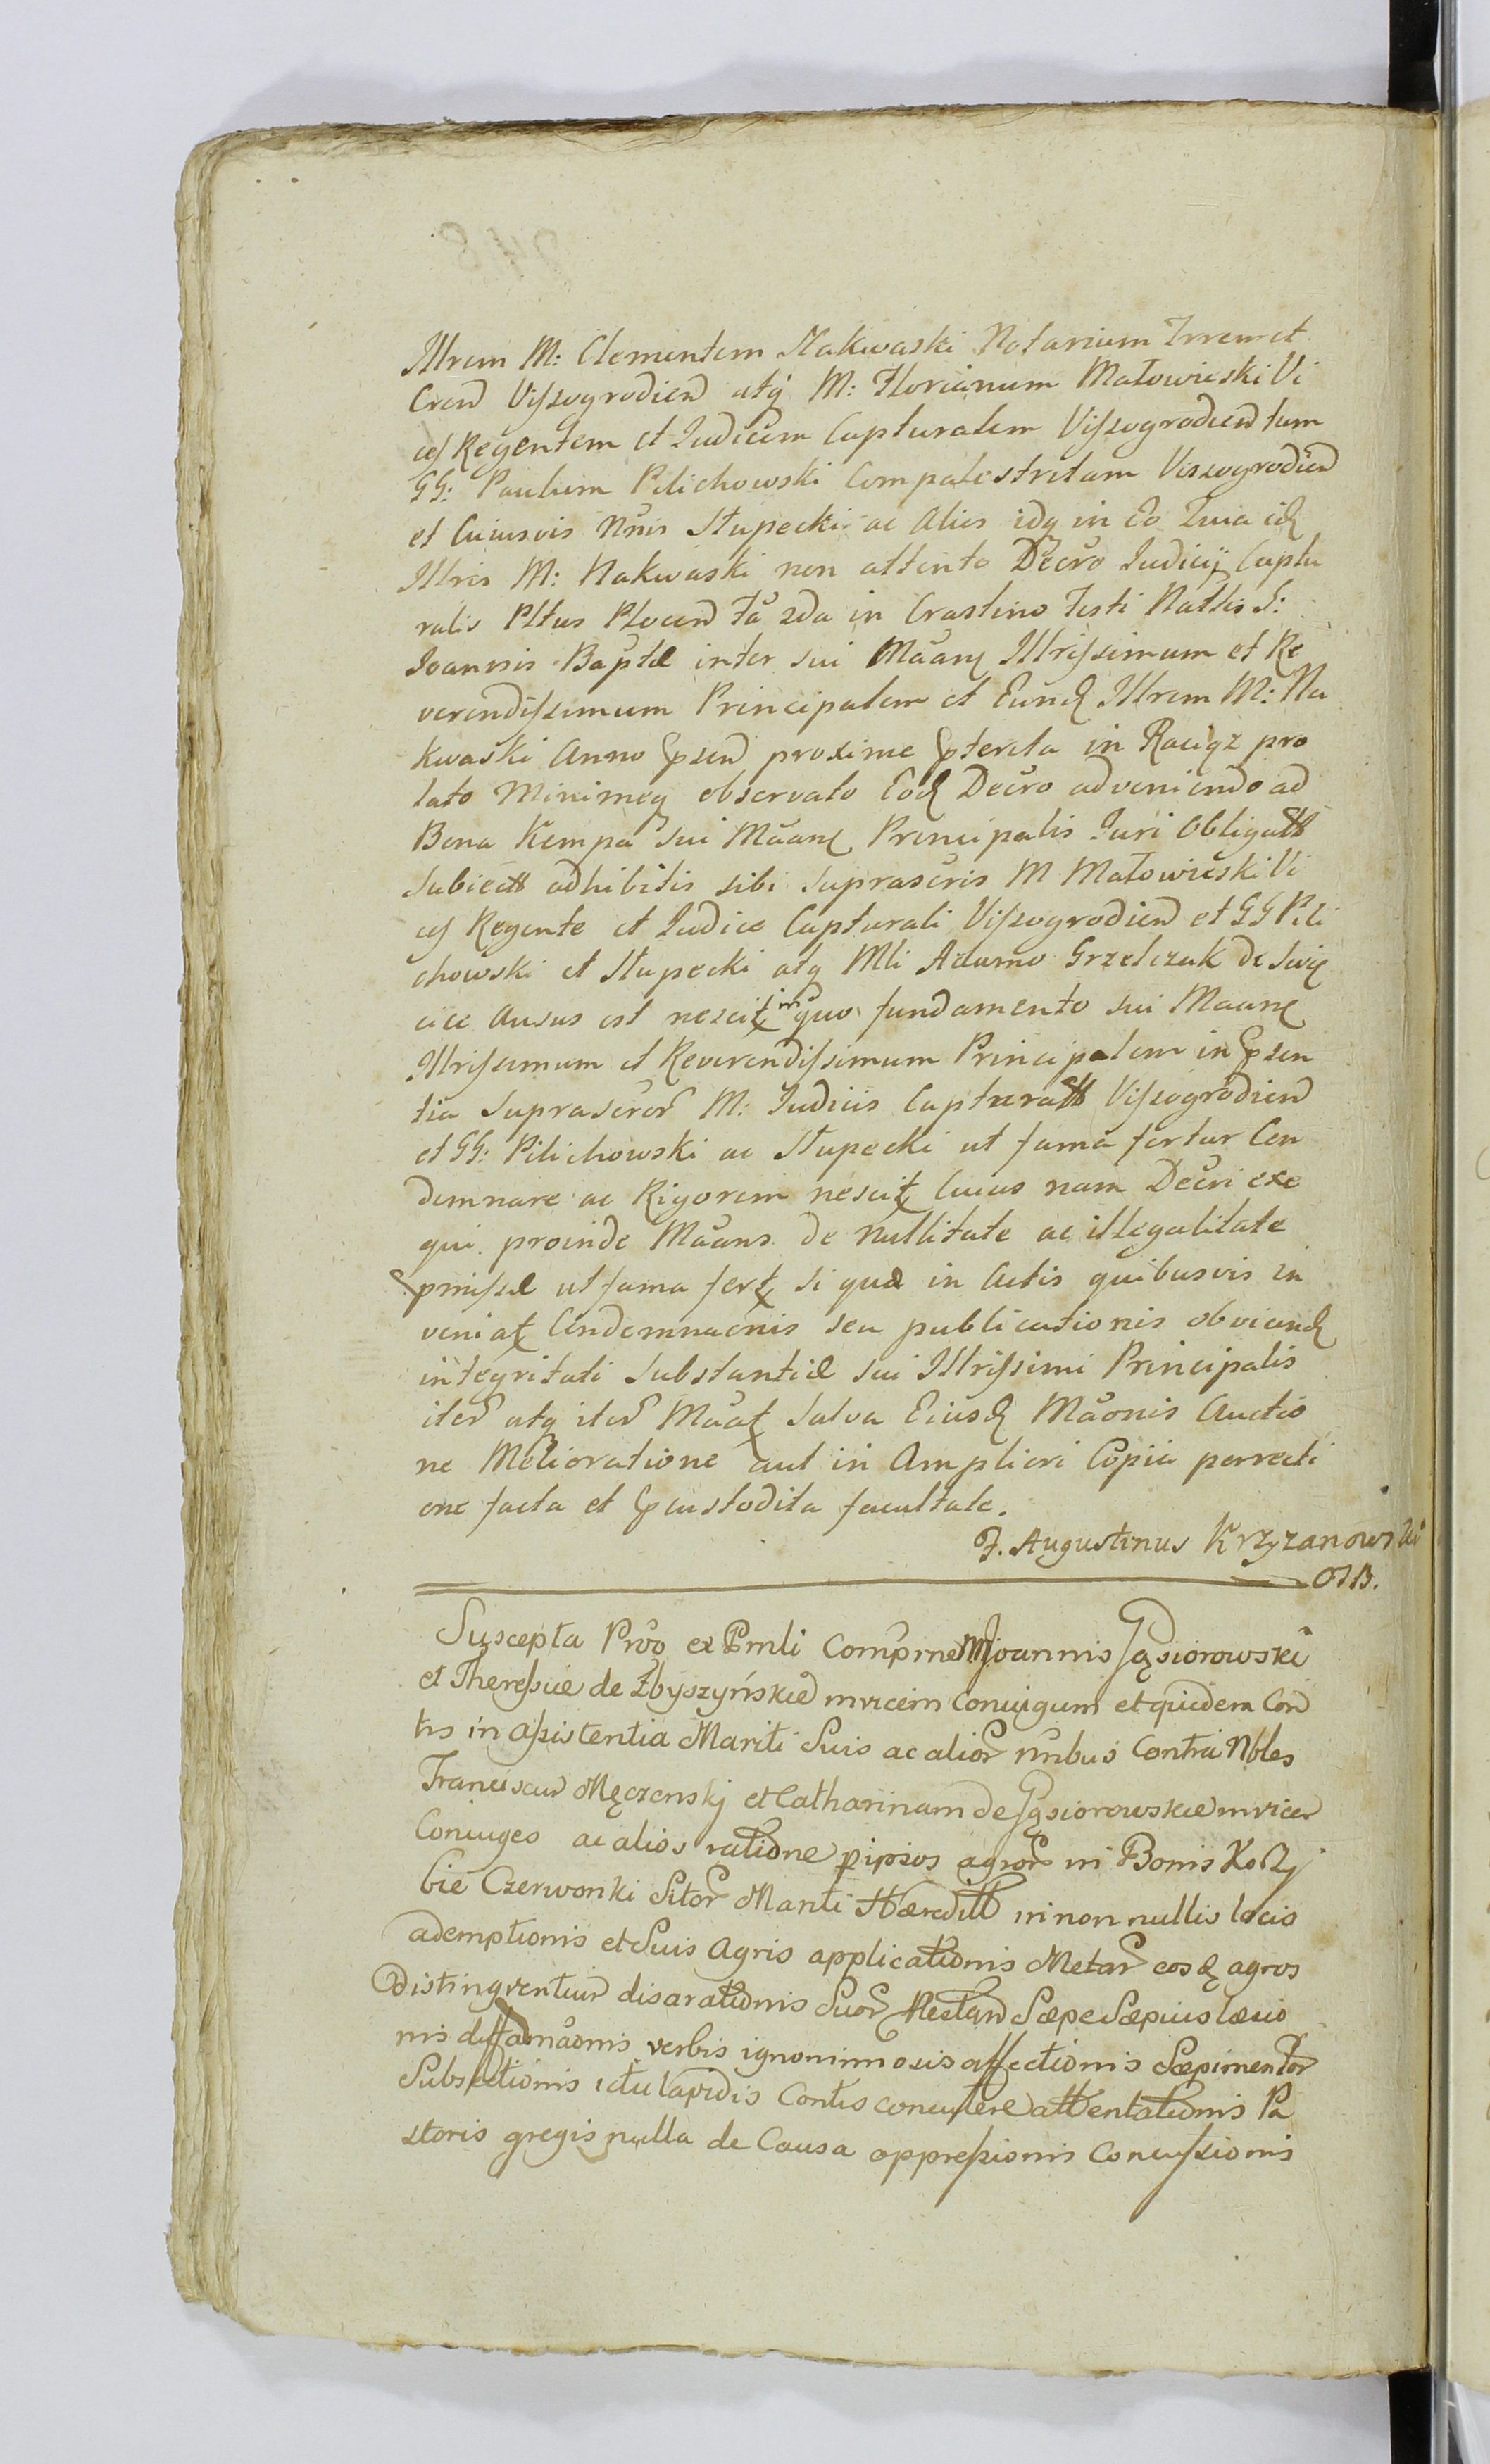 Illrem M: Clementem Nakwaski Notarium Trrem et
Cren Viszogrodien atq M: Florianum Małowieski Vi
ces Regentem et Judicem Capturalem Viszogrodien tum
GG: Paulum Pilichowski Compalestritam Viszogrodien
et Cuiusvis Nnis Słupecki ac Alios idq in Eo Quia id
Illris M: Nakwaski non attento Decro Judicij Captu
ralis Pltus Plocen Fa 2da in Crastino Festi Nattis S:
Joannis Baptæ inter sui Maan Illrissimum et Re
verendissimum Principalem et Eund Illrem M: Na
kwaski Anno psen proxime pterita in Raciąz pro
lato Minimeq observato Eod Decro adveniendo ad
Bona Kempa sui Maan Principalis Juri Obligatt
Subiectt adhibitis sibi suprascris M Małowieski Vi
ces Regente et Judice Capturali Viszogrodien et GG Pili
chowski et Słupecki atq Mli Adamo Grzelczak de Swię
cice Ausus est nescit in quo fundamento sui Maan
Illrissimum et Reverendissimum Principalem in psen
tia Suprascror M: Judicis Capturatt Viszogrodien
et GG: Pilichowski ac Słupecki ut fama fertur Con
demnare ac Rigorem nescit Cuius nam Decri exe
qui proinde Maans de nullitate ac illegalitate
pmissæ ut fama fert si quæ in Actis quibusvis in
veniat Condemnaonis seu publicationis obviand
integritati Substantiæ sui Illrissimi Principalis
iter atq iter Maat Salva Eiusd Maonis Auctio
ne Melioratione aut in Ampliori Copia porrecti
one facta et pcustodita facultate.
F. Augustinus Krzyzanowski
OSB.
Suscepta Prõo ex Pmli Compme M Joannis Gąsiorowski
et Theresiæ de Zbyszyńskie invicem Coniugum et quidem Con
tis in Assistentia Mariti Suis ac alior nnbus Contra Nbles
Franciscum Męczenskj et Catharinam de Gąsiorowskie invicem
Coniuges ac alios ratione p ipsos agror in Bonis Kołzy
bie Czerwonki Sitor Mariti Hæreditt in non nullis locis
ademptionis et Suis Agris applicationis Metar eosd agros
distingventium disarationis Suor Sæpe Sæpius læsio
nis diffamaonis verbis ignominiosis affectionis Sæpimentor
Subsectionis ictu lapidis Contis concutere attentationis Pa
storis gregis nulla de Causa oppressionis Concussionis